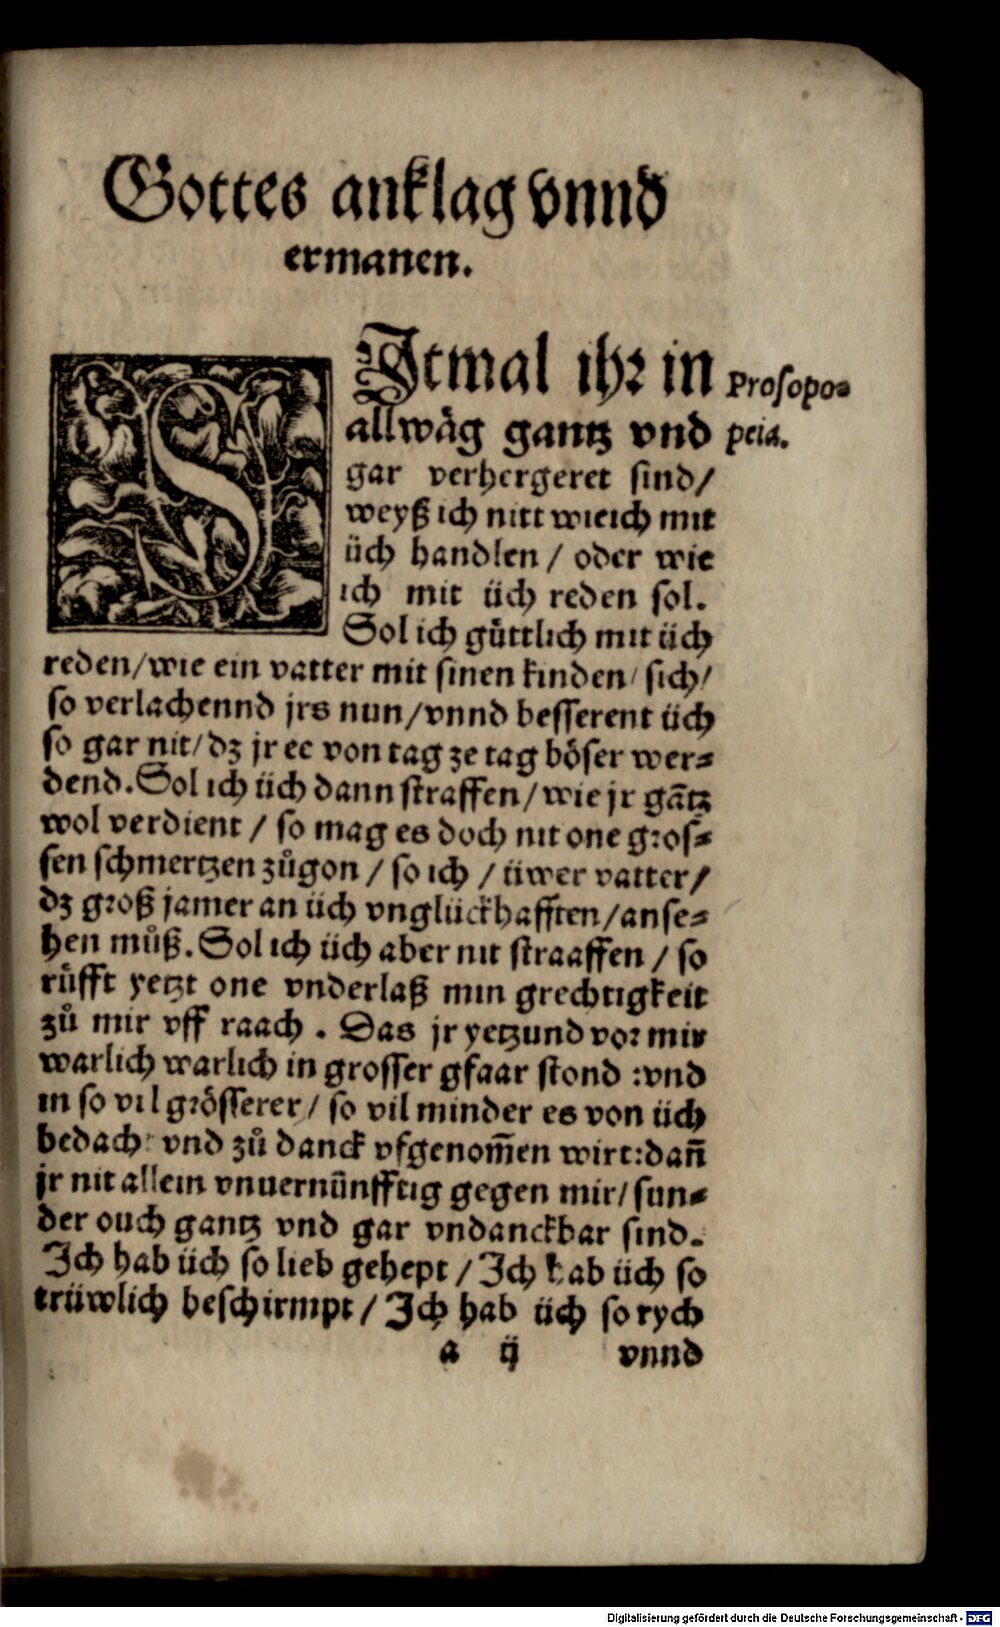 Gottes anklag vnnd
ermanen.
SJtmal ihr in
allwäg gantz vnd
gar verhergeret sind/
weyß ich nitt wie ich mit
üch handlen / oder wie
ich mit üch reden sol.
Sol ich güttlich mit üch
reden/wie ein vatter mit sinen kinden/ sich/
so verlachennd jrs nun/vnnd besserent üch
so gar nit/dz jr ee von tag ze tag böser wer=
dend. Sol ich üch dann straffen/wie jr gātz
wol verdient / so mag es doch nit one gros=
sen schmertzen zůgon / so ich / üwer vatter/
dz groß jamer an üch vnglückhafften/anse=
hen můß. Sol ich üch aber nit straaffen / so
rüfft yetzt one vnderlaß min grechtigkeit
zů mir vff raach . Das jr yetzund vor mir
warlich warlich in grosser gfaar stond :vnd
in so vil grösserer/ so vil minder es von üch
bedach: vnd zů danck vfgenom̄en wirt:dan̄
jr nit allein vnuernünfftig gegen mir/ sun=
der ouch gantz vnd gar vndanckbar sind.
Ich hab üch so lieb gehept / Ich hab üch so
trüwlich beschirmpt / Ich hab üch so rych
a ij vnnd
Prosopo=
peia.
Digitalisierung gefördert durch die Deutsche Forschungsgemeinschaft - DFG